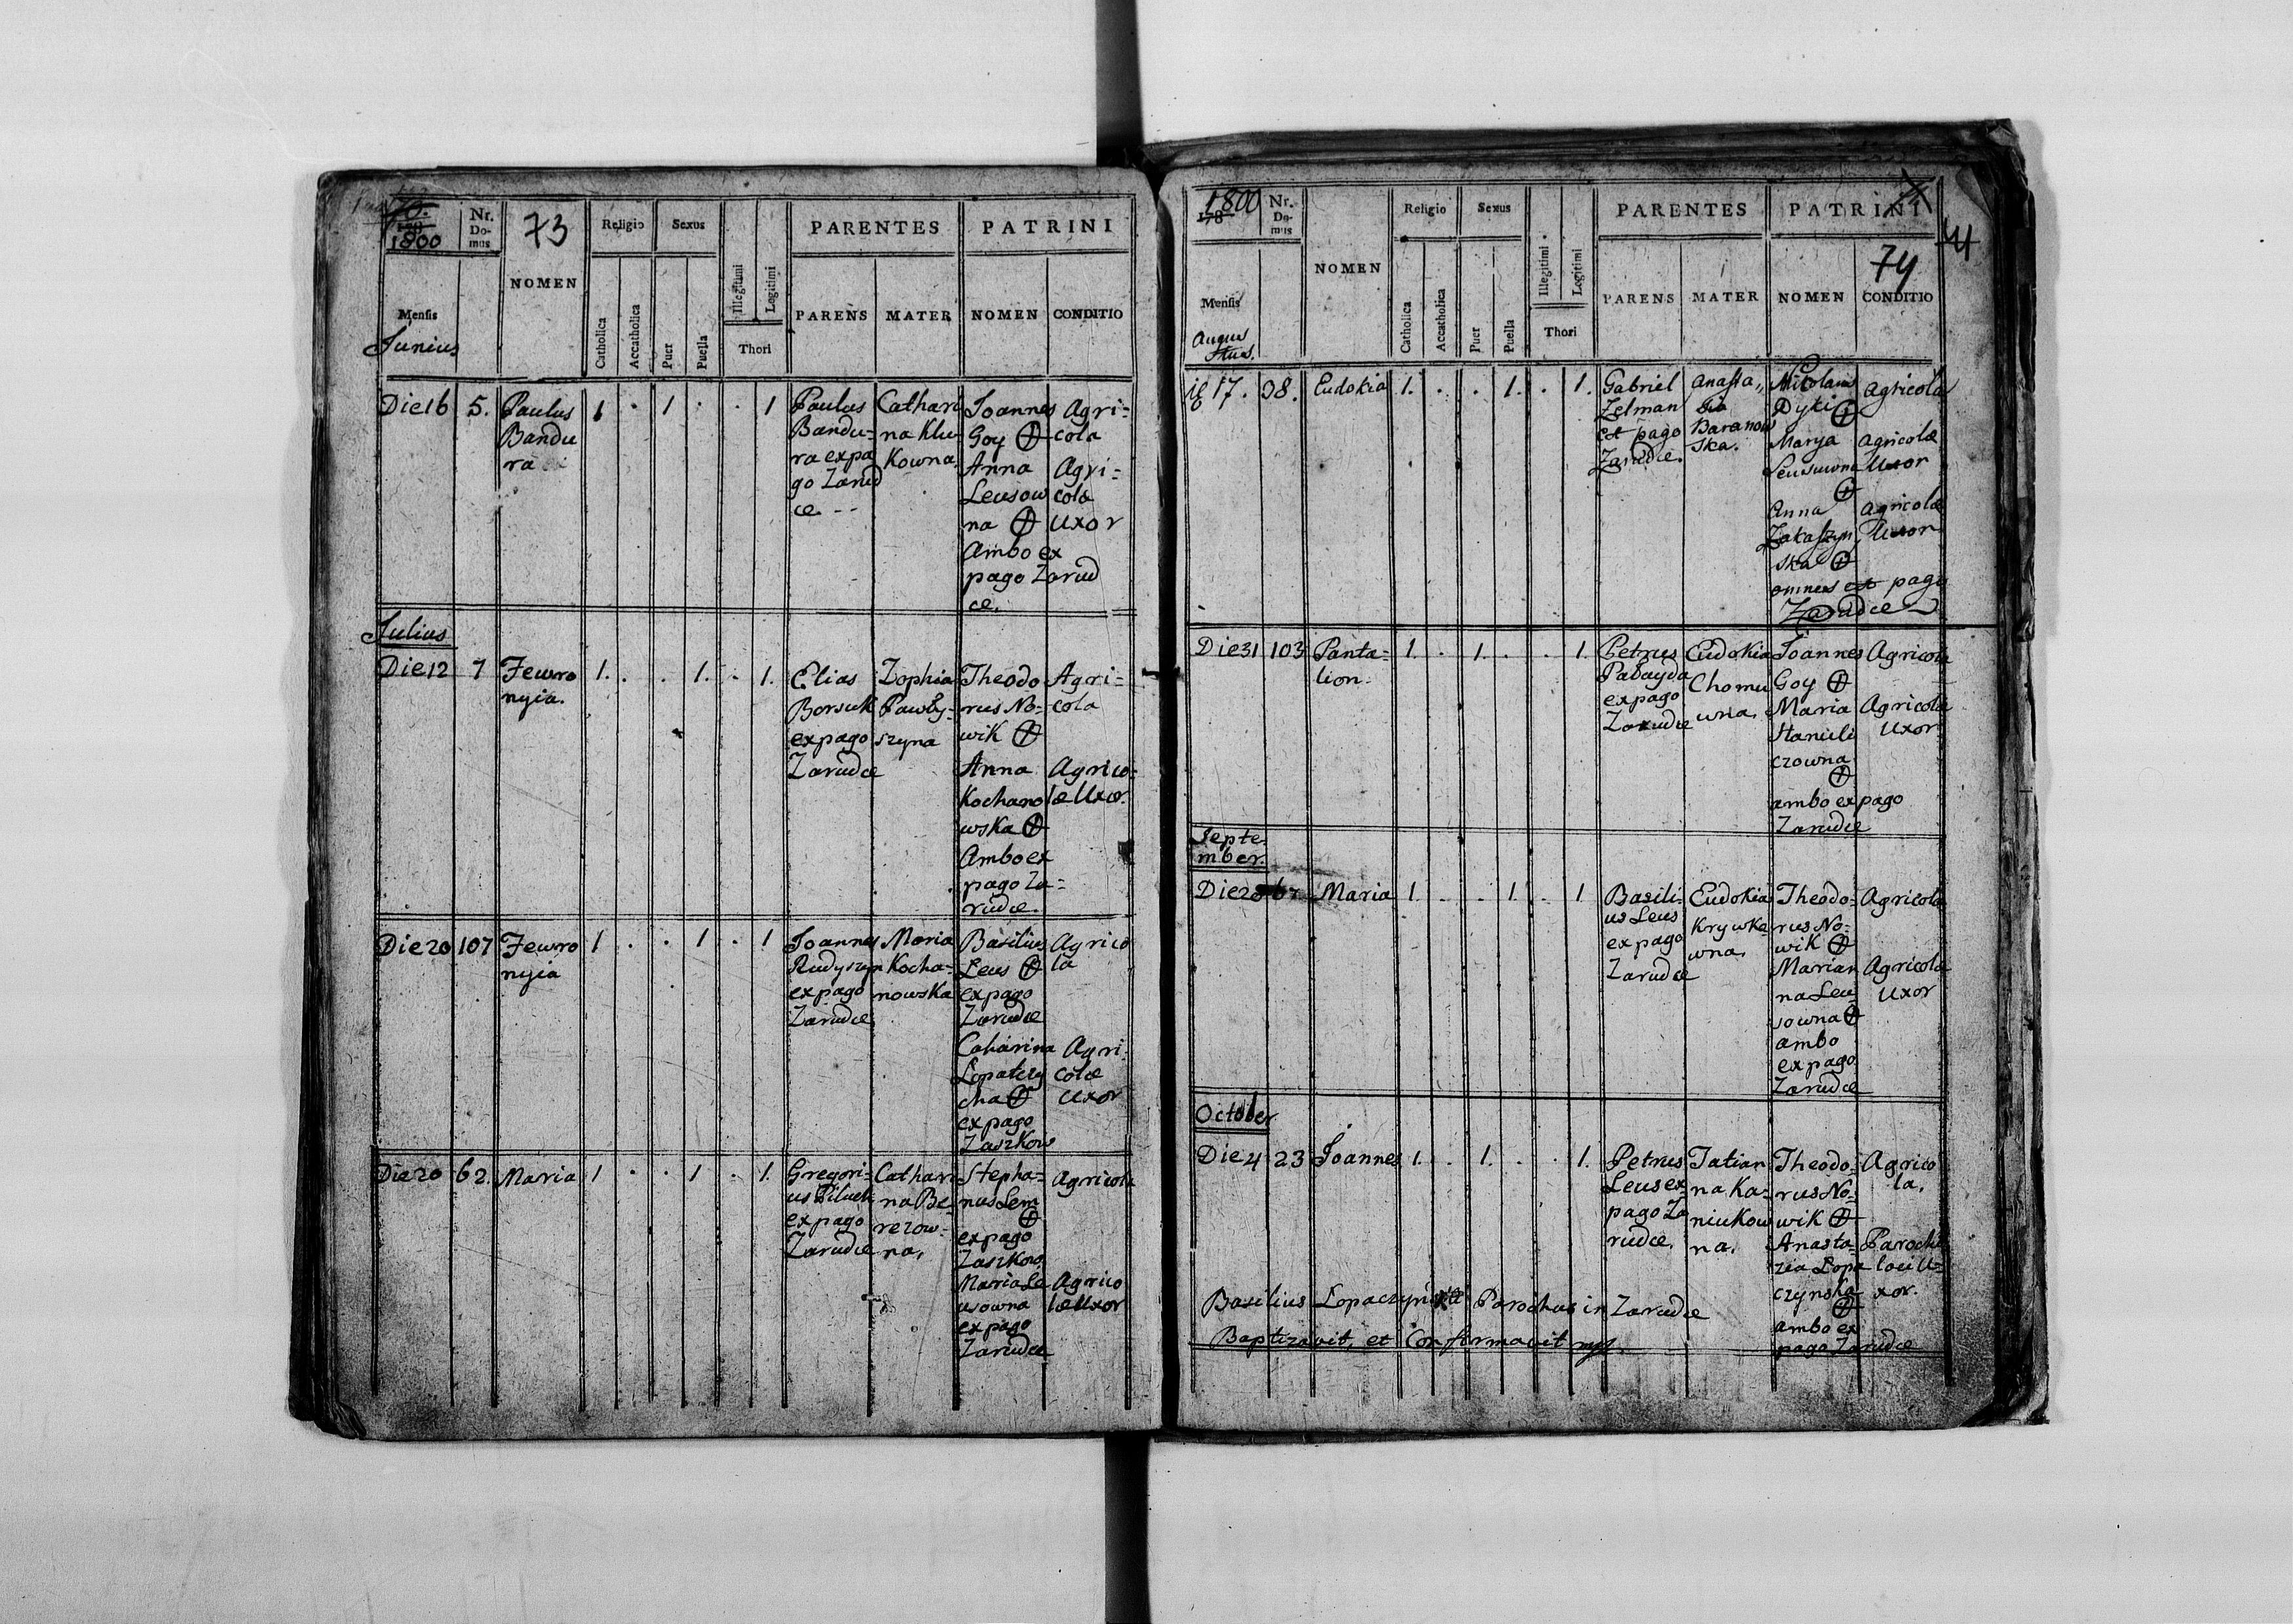 1800
Nr. Domus
73
NOMEN
Religio
Sexus
PARENTES
PATRINI
Mensis
Junius
Catholica
Accatholica
Puer
Puella
Illegitimi
Legitimi
Thori
PARENS
MATER
NOMEN
CONDITIO
Die 16
5.
Paulus
Bandu
ra
1
1
1
Paulus
Bandu-
ra ex pa
go Zarud
ce.
Cathari
na Klu
kowna
Joannes
Goy ⊕
Anna
Leusow
na ⊕
Ambo ex
pago Zarud
ce.
Agri=
cola
Agri=
colæ
Uxor
Julius
Die 12
7
Fewro
nyia.
1.
1.
1.
Elias
Borsuk
ex pago
Zarudce
Zophia
szyna
Theodo
rus No-
wik ⊕
Anna
Kochano
wska ⊕
Ambo ex
pago Za=
rudce.
Agri=
cola
Agrico-
læ Uxor.
Die 20
107
Fewro
nyia
1
1
1
Joannes
Rudyszyn
ex pago
Zarudce
Maria
Kocha-
nowska
Basilius
Leus ⊕
ex pago
Zarudce
Caharina
Lopatczy
cha ⊕
ex pago
Zaszkow
Agrico
la
Agri-
colæ
Uxor
Die 20
62.
Maria
1
1
1.
Gregori-
us
ex pago
Zarudce
Cathari
na Be-
rezow-
na,
Stepha-
nus Lem
⊕
ex pago
Zaszkow
Maria Le
usowna
ex pago
Zarudce
Agricola
Agrico
læ Uxor
1800
Nr. Domus
NOMEN
Religio
Sexus
PARENTES
PATRINI
74
Mensis
Augus
tus.
Catholica
Accatholica
Puer
Puella
Illegitimi
Legitimi
Thori
PARENS
MATER
NOMEN
CONDITIO
17.
38.
Eudokia
1.
1.
1.
Gabriel
Zelman
ex pago
Zarudce.
Anasta,,
sia
Baranow
ska.
Mikolaus
Dyki ⊕
Marya
Leusuwna
⊕
Anna
Zakaszyn
ska ⊕
omnes ex pago
Zarudce
Agricola
Agricolæ
Uxor
Agricolæ
Uxor
Die 31
103
Panta=
lion.
1.
1.
1.
Petrus
Pabayda
ex pago
Zarudce
Eudokia
Chomu
wna,
Joannes
Goy ⊕
Maria
Staniuli
czowna
⊕
ambo ex pago
Zarudce
Agricola
Agricolæ
Uxor
Septe.
mber.
Die 20
67
Maria
1.
1.
1
Basili-
us Leus
ex pago
Zarudce
Eudokia
Krywke
wna,
Theodo-
rus No-
wik ⊕
Marian
na Leu
sowna ⊕
ambo
ex pago
Zarudce
Agricola
Agricolæ
Uxor
October
Die 4
23
Joannes
1.
1.
1.
Petrus
Leus ex
pago Za
rudce.
Tatian
na Ka-
niukow
na.
Theodo-
rus No-
wik ⊕
Anasta-
zia Lopa
czynska
⊕
ambo ex
pago Zarudce
Agrico
la,
Parochi
loci U-
xor.
Basilius Lopaczynski Parochus in Zarudce
Baptizavit, et Confirmavit mpp.